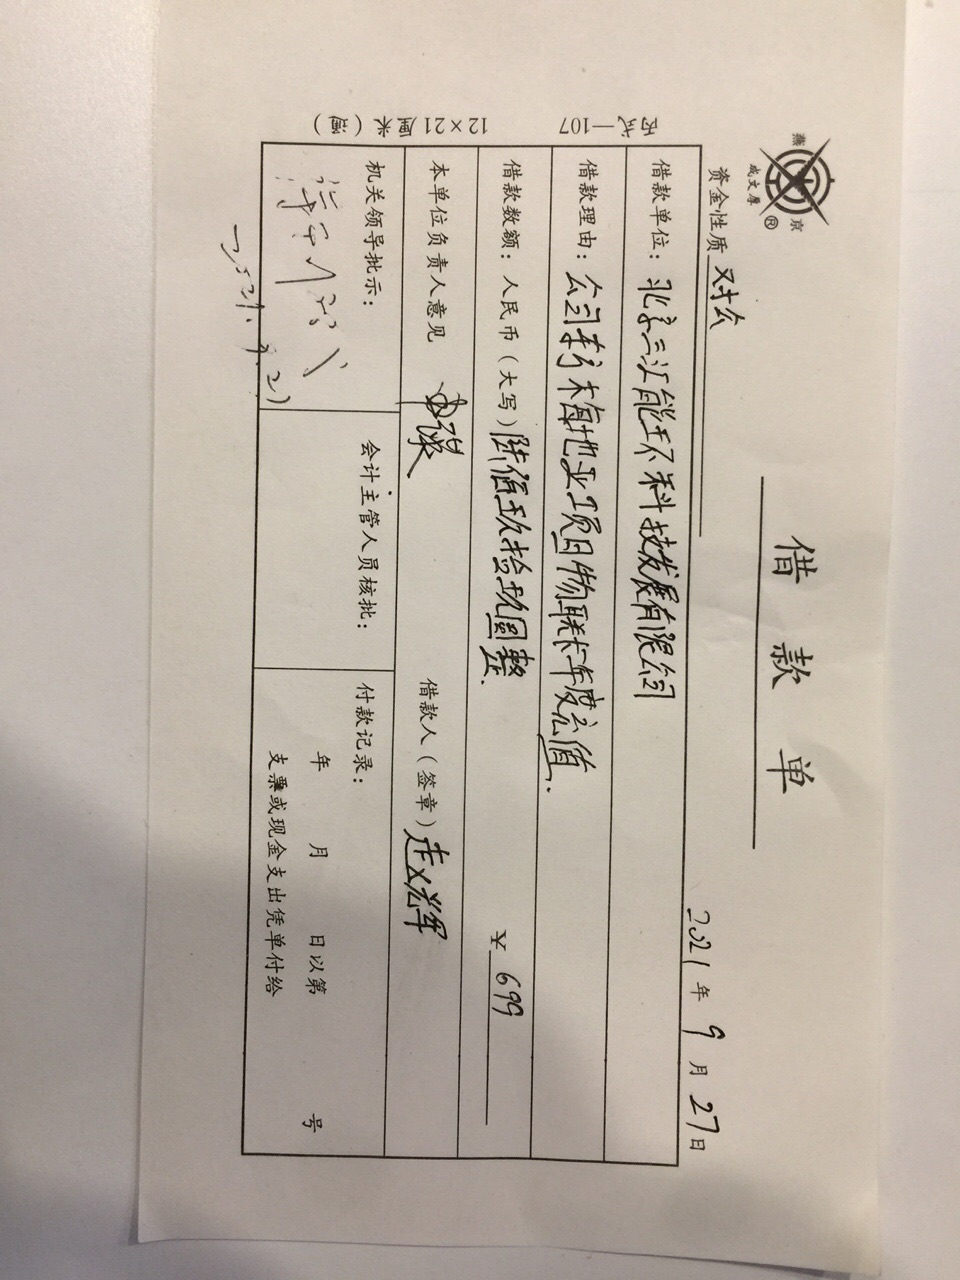 燕京
成文厚
®
借款单
2021年9月27日
资金性质 对公
借款单位：北京三江能环科技发展有限公司
借款理由：公司 梅地亚项目物联卡年度充值.
借款数额：人民币（大写）陆佰玖拾玖圆整. ¥ 699
本单位负责人意见 借款人（签章）赵宏辉
机关领导批示：
会计主管人员核批：
付款记录：
年 月 日以第 号
支票或现金支出凭单付给
丙式—107 12×21厘米（画）